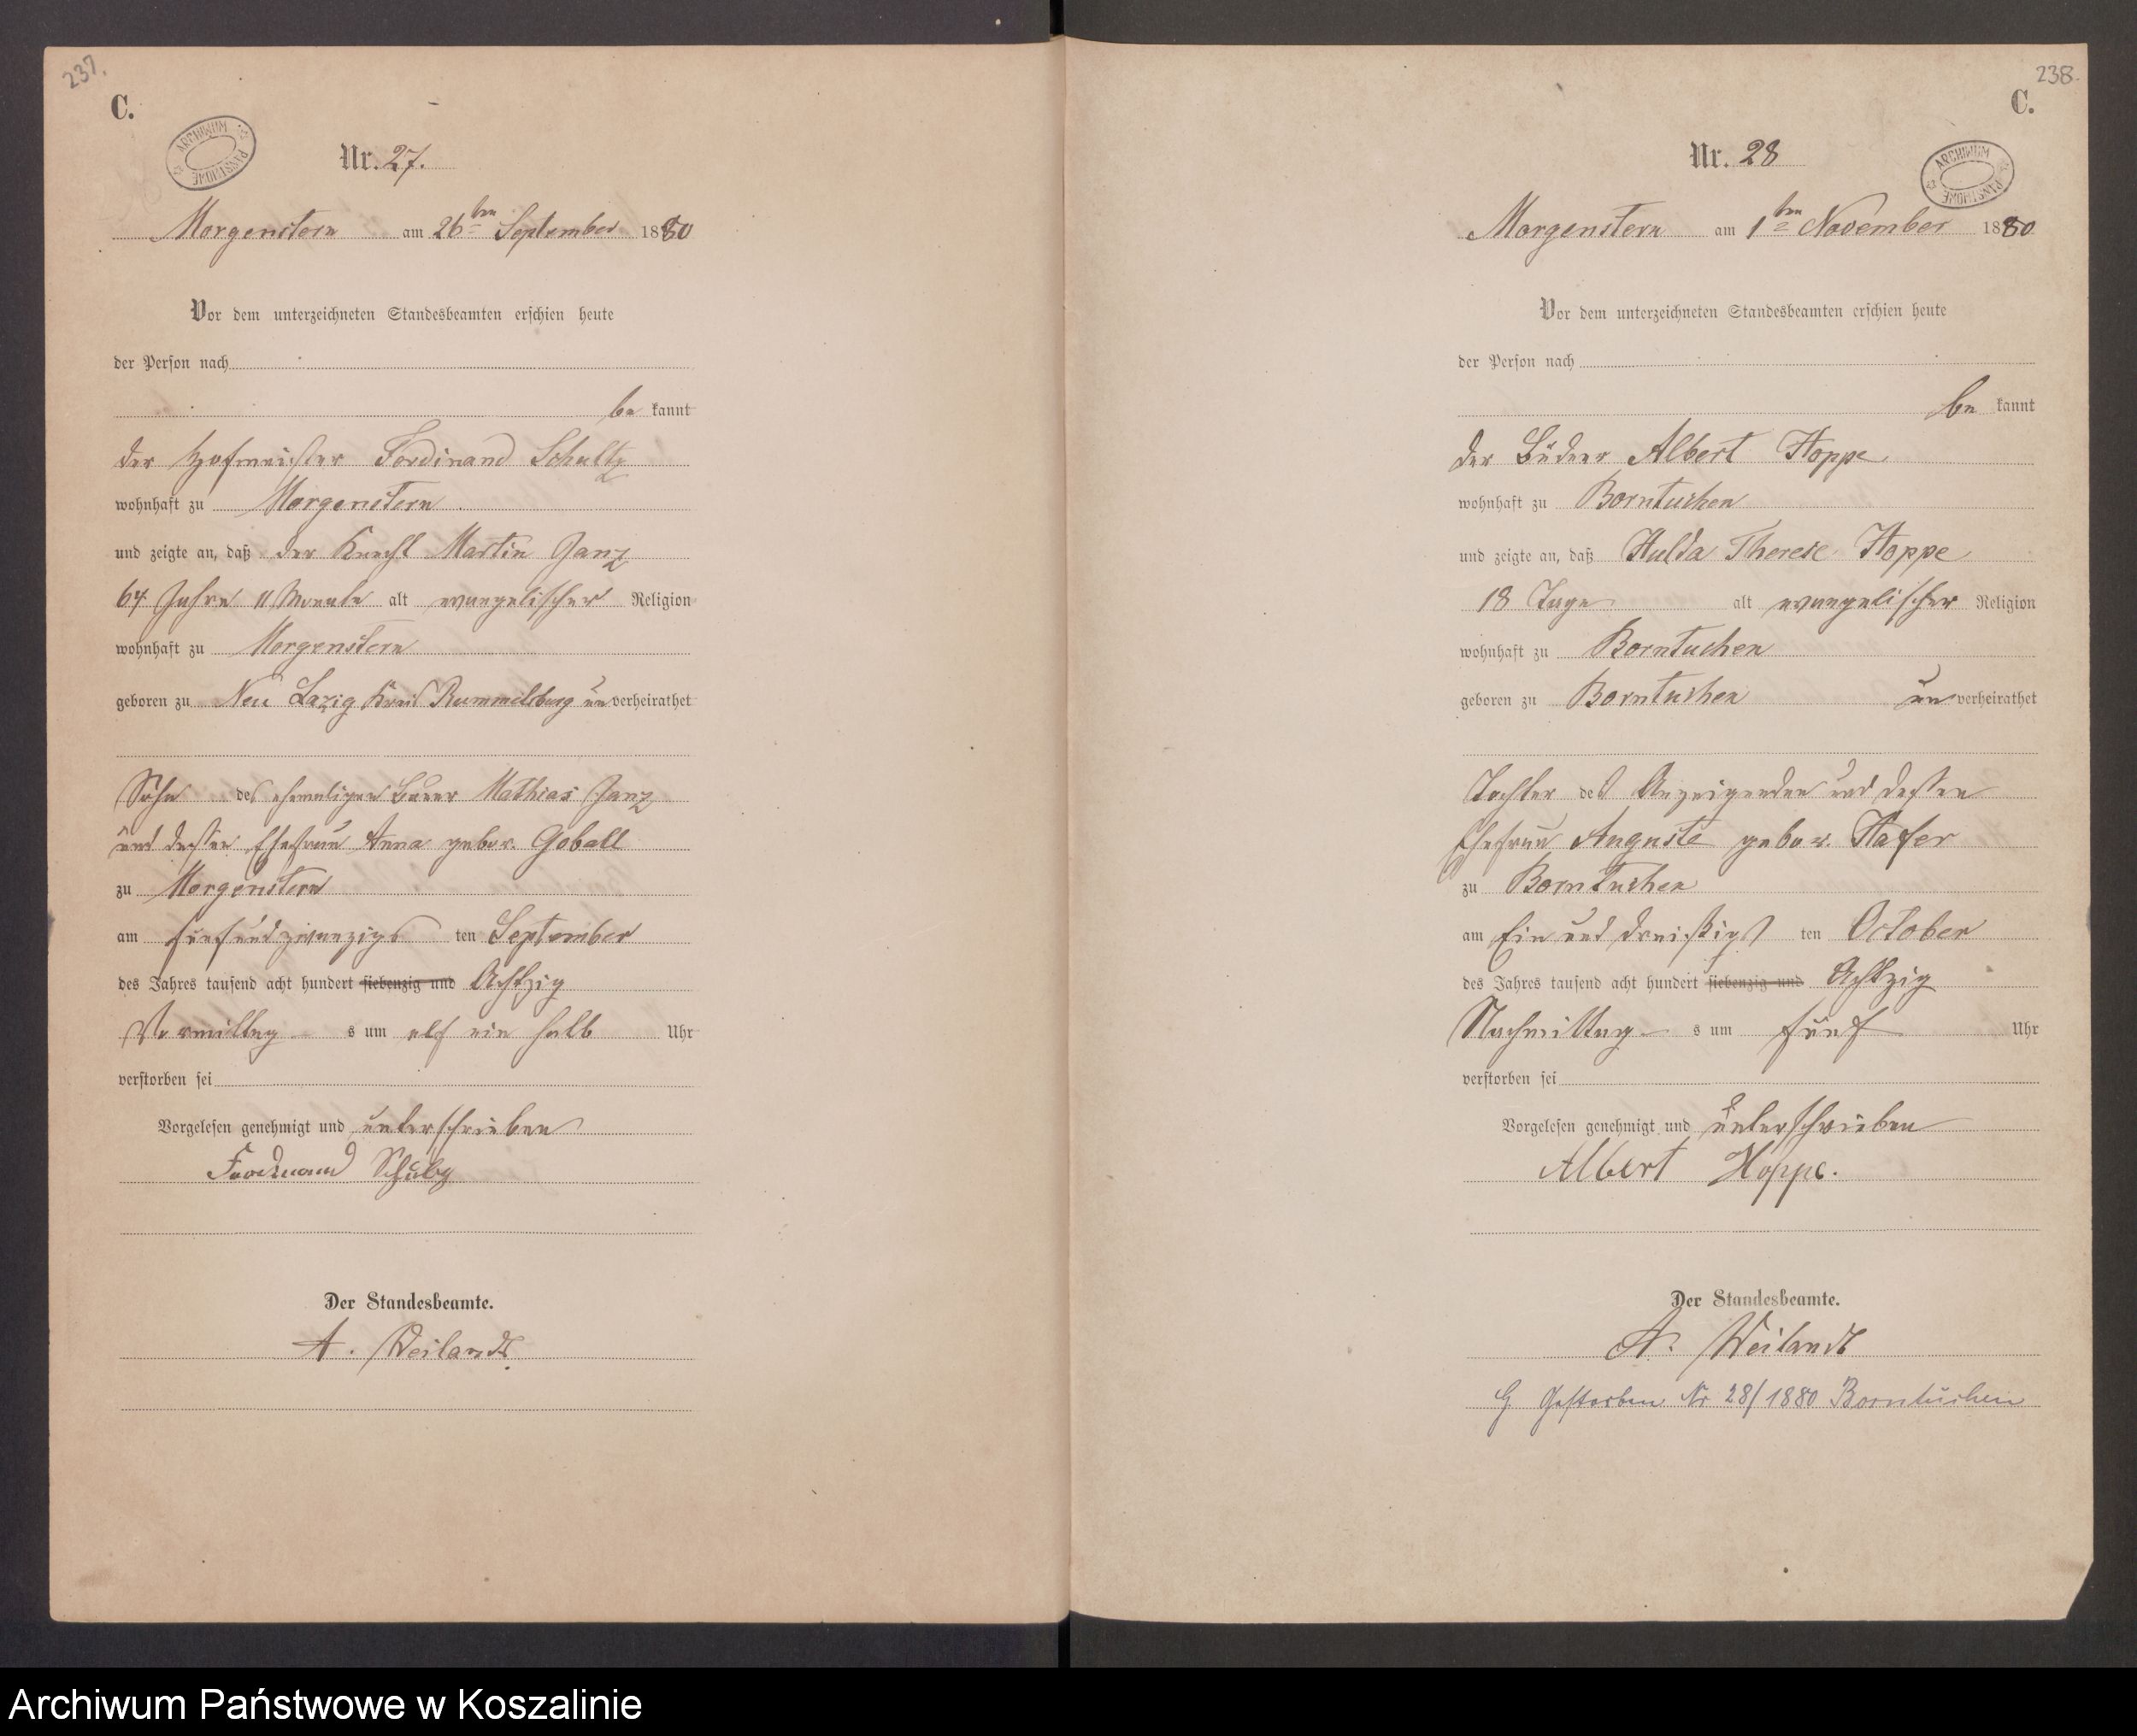 237.
C.
ARCHIWUM PAŃSTWOWE
Nr. 27.
Morgenstern am 26ten September 1880
Vor dem unterzeichneten Standesbeamten erschien heute
der Person nach
be kannt
der Hofmeister Ferdinand Schultz
wohnhaft zu Morgenstern
und zeigte an, daß der Knecht Martin Janz
64 Jahre 11 Monate alt evangelischer Religion
wohnhaft zu Morgenstern
geboren zu Neu Lazig Kreis Rummelsburg unverheirathet
Sohn des ehemaligen Bauer Mathias Janz
und dessen Ehefrau Anna gebor. Goball
zu Morgenstern
am fünfundzwanzigs ten September
des Jahres tausend acht hundert siebenzig und Achtzig
Vormittag s um elf ein halb Uhr
verstorben sei
Vorgelesen genehmigt und unterschrieben
Ferdinand Schulz
Der Standesbeamte.
A. Weilandt.
238.
C.
ARCHIWUM PAŃSTWOWE
Nr. 28
Morgenstern am 1ten November 1880
Vor dem unterzeichneten Standesbeamten erschien heute
der Person nach
be kannt
der Büdner Albert Hoppe
wohnhaft zu Borntuchen
und zeigte an, daß Hulda Therese Hoppe
18 Tage alt evangelischer Religion
wohnhaft zu Borntuchen
geboren zu Borntuchen unverheirathet
Tochter des Anzeigenden und dessen
Ehefrau Auguste gebor. Hafer
zu Borntuchen
am Ein und dreißigs ten October
des Jahres tausend acht hundert siebenzig und Achtzig
Nachmittag s um fünf Uhr
verstorben sei
Vorgelesen genehmigt und unterschrieben
Albert Hoppe.
Der Standesbeamte.
A. Weilandt
G. Gestorben Nr 28/1880 Borntuchen
Archiwum Państwowe w Koszalinie